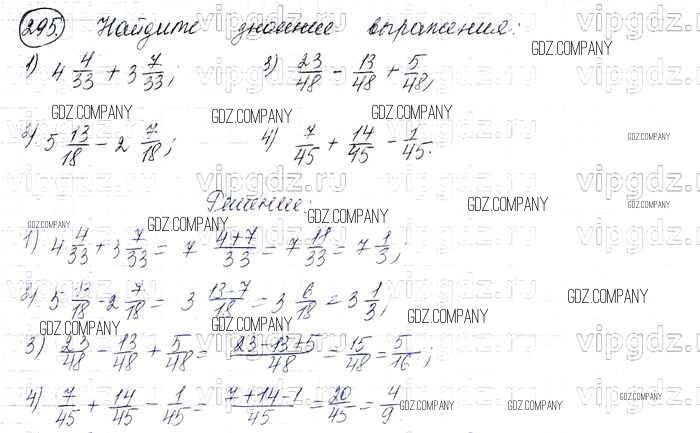 295. Найдите значение выражения:
1) 4 4/33 + 3 7/33; 3) 23/48 - 13/48 + 5/48;
2) 5 13/18 - 2 7/18; 4) 7/45 + 14/45 - 1/45.
Решение:
1) 4 4/33 + 3 7/33 = 7 (4+7)/33 = 7 11/33 = 7 1/3;
2) 5 13/18 - 2 7/18 = 3 (13-7)/18 = 3 6/18 = 3 1/3;
3) 23/48 - 13/48 + 5/48 = (23-13+5)/48 = 15/48 = 5/16;
4) 7/45 + 14/45 - 1/45 = (7+14-1)/45 = 20/45 = 4/9.
GDZ.COMPANY
vipgdz.ru